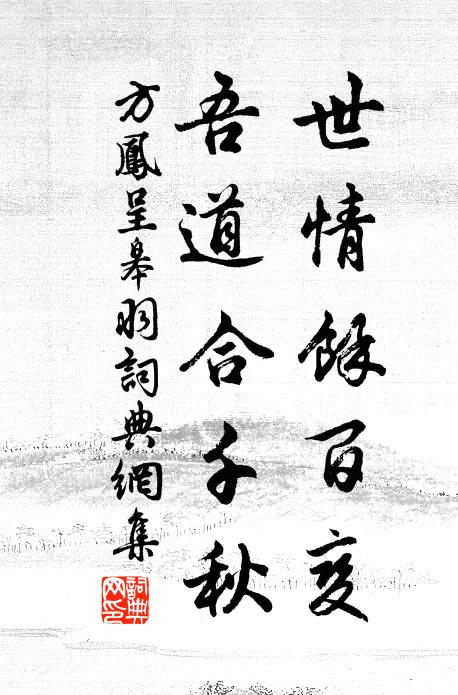 世情餘百變
吾道合千秋
方鳳呈皋羽詞典網集
詞典网印